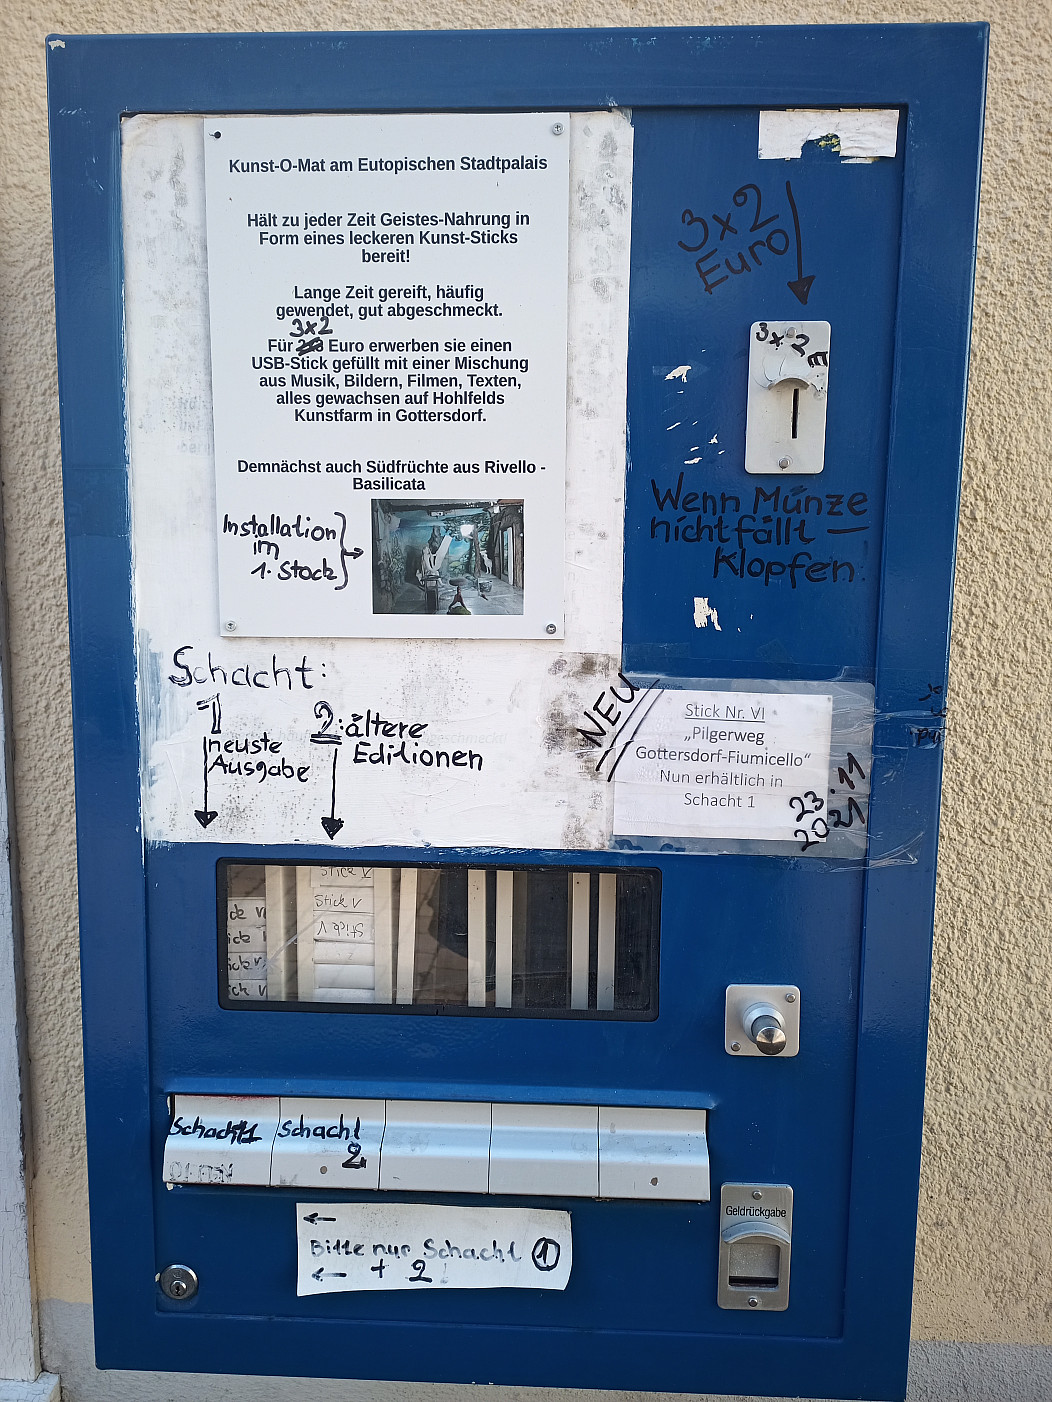 Kunst-O-Mat am Eutopischen Stadtpalais
Hält zu jeder Zeit Geistes-Nahrung in
Form eines leckeren Kunst-Sticks
bereit!
Lange Zeit gereift, häufig
gewendet, gut abgeschmeckt.
3x2
Für Euro erwerben sie einen
USB-Stick gefüllt mit einer Mischung
aus Musik, Bildern, Filmen, Texten,
alles gewachsen auf Hohlfelds
Kunstfarm in Gottersdorf.
Demnächst auch Südfrüchte aus Rivello -
Basilicata
Installation
im
1. Stock
3x2
Euro
3x2
E
Wenn Münze
nicht fällt –
Klopfen!
Schacht:
1
neuste
Ausgabe
2: ältere
Editionen
NEU
Stick Nr. VI
„Pilgerweg
Gottersdorf-Fiumicello“
Nun erhältlich in
Schacht 1
23.11
2021
Stick V
Stick V
Stick V
Schacht 1
Schacht
2
Bitte nur Schacht 1
+ 2
Geldrückgabe